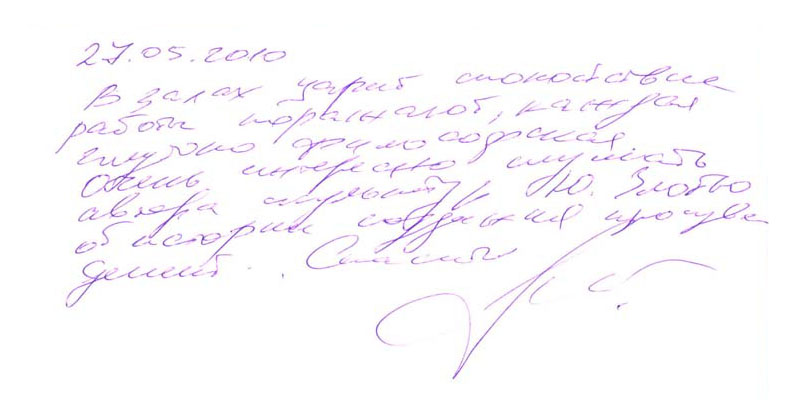 27.05.2010
В залах царит спокойствие
работы поражают, каждая
глубоко философская
Очень интересно слушать
автора Ю. Злотю
об истории создания
дений. Спасибо